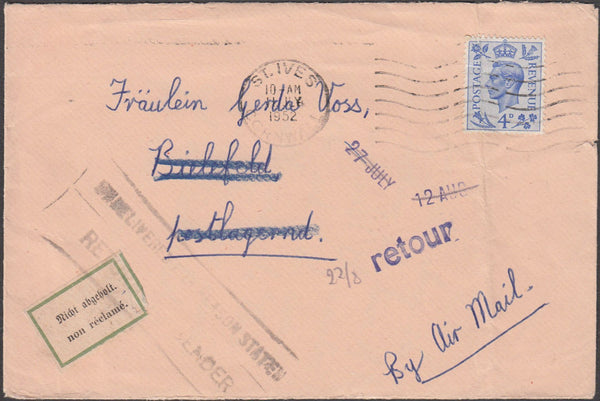 ST. IVES
10 AM
1952
CORNWALL
POSTAGE
REVENUE
4D
Fräulein Gerda Voss,
Bielefeld
postlagernd.
27 JULY
12 AUG
retour
22/8
UNDELIVERED FOR REASON STATED
RETURN TO SENDER
Nicht abgeholt.
non réclamé.
By Air Mail.